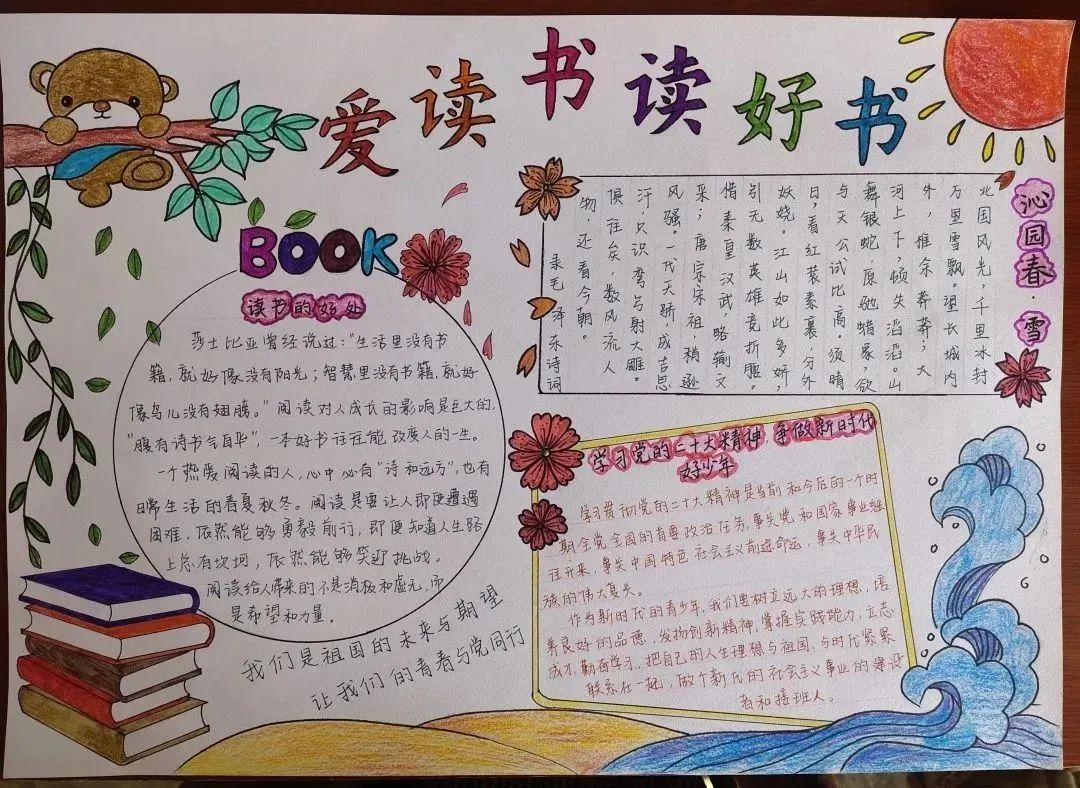 爱读书读好书
BOOK
读书的好处
莎士比亚曾经说过:"生活里没有书
籍,就好像没有阳光;智慧里没有书籍,就好
像鸟儿没有翅膀。"阅读对人成长的影响是巨大的,
"腹有诗书气自华",一本好书往往能改变人的一生。
一个热爱阅读的人,心中必有"诗和远方",也有
日常生活的春夏秋冬。阅读是要让人即便遭遇
困难,依然能够勇毅前行,即便知道人生路
上总有坎坷,依然能够笑迎挑战。
阅读给人带来的不是消极和虚无,而
是希望和力量。
我们是祖国的未来与期望
让我们的青春与党同行
沁园春·雪
北国风光,千里冰封
万里雪飘。望长城内
外,惟余莽莽;大
河上下,顿失滔滔。山
舞银蛇,原驰蜡象,欲
与天公试比高。须晴
日,看红装素裹,分外
妖娆。江山如此多娇,
引无数英雄竞折腰。
惜秦皇汉武,略输文
采;唐宗宋祖,稍逊
风骚。一代天骄,成吉思
汗,只识弯弓射大雕。
俱往矣,数风流人
物,还看今朝。
录毛泽东诗词
学习党的二十大精神,争做新时代
好少年
学习贯彻党的二十大精神是当前和今后的一个时
期全党全国的首要政治任务,事关党和国家事业继
往开来,事关中国特色社会主义前途命运,事关中华民
族的伟大复兴。
作为新时代的青少年,我们要树立远大的理想,培
养良好的品德,发扬创新精神,掌握实践能力,立志
成才,勤奋学习,把自己的人生理想与祖国,与时代紧紧
联系在一起,做个新代的社会主义事业的建设
者和接班人。